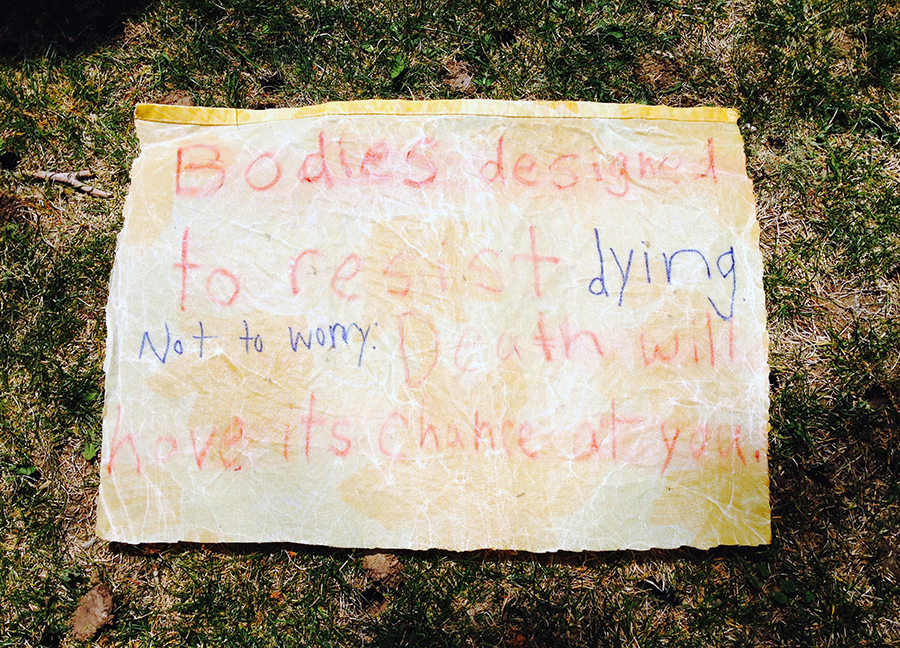 Bodies designed
to resist dying.
Not to worry: Death will
have its chance at you.